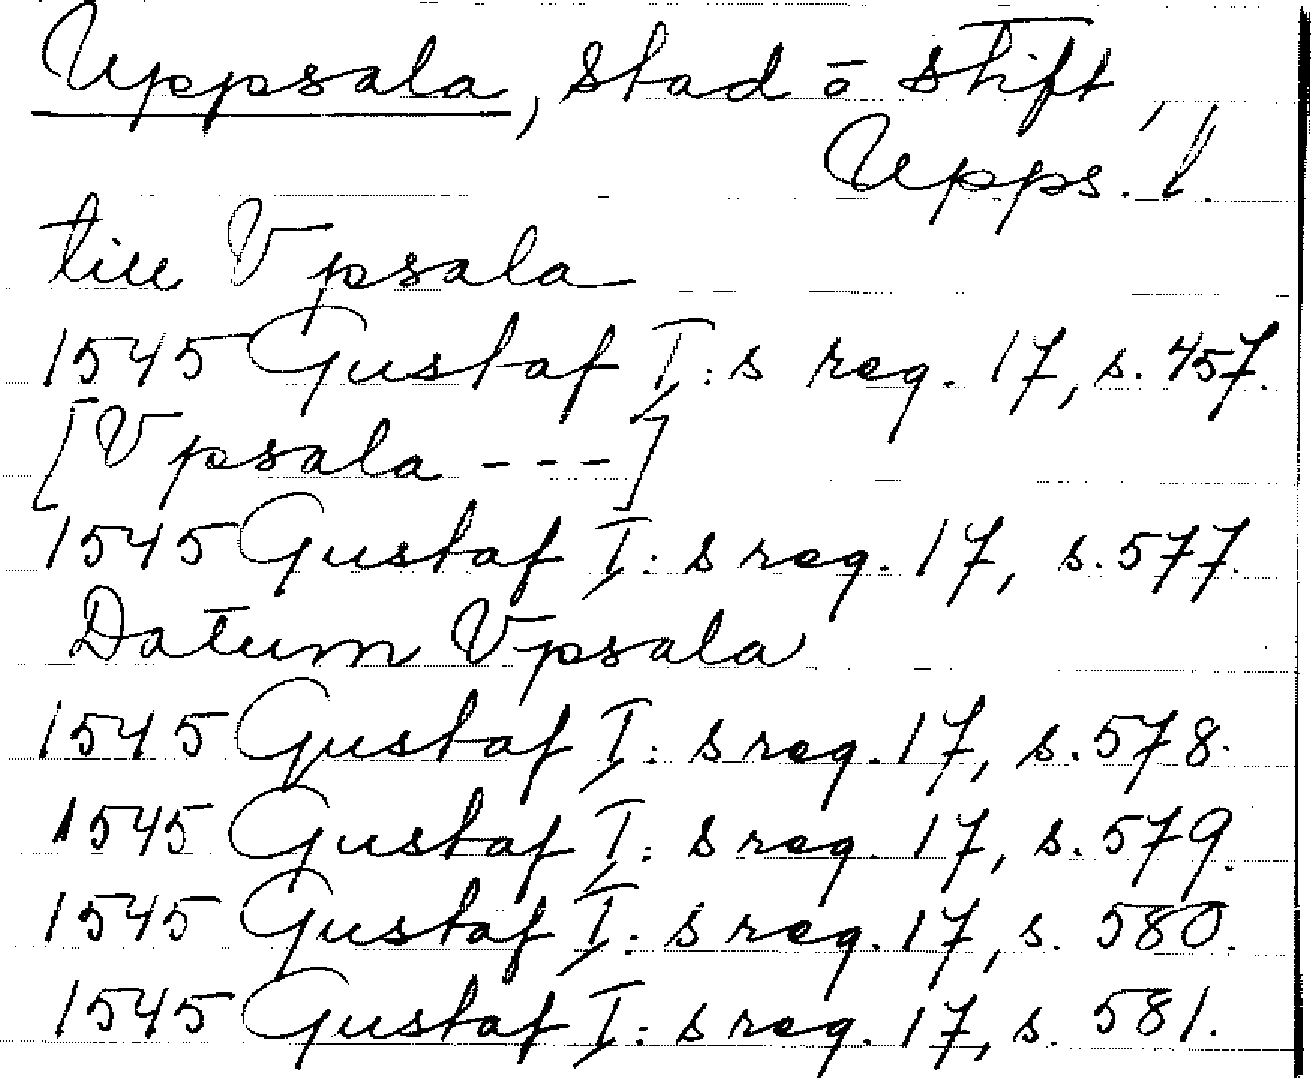 Uppsala, stad ō stift,
Upps. l.
till Vpsala
1545 Gustaf I:s reg. 17, s. 457.
[Vpsala - - -]
1545 Gustaf I:s reg. 17, s. 577.
Datum Vpsala
1545 Gustaf I:s reg. 17, s. 578.
1545 Gustaf I:s reg. 17, s. 579.
1545 Gustaf I:s reg. 17, s. 580.
1545 Gustaf I:s reg. 17, s. 581.